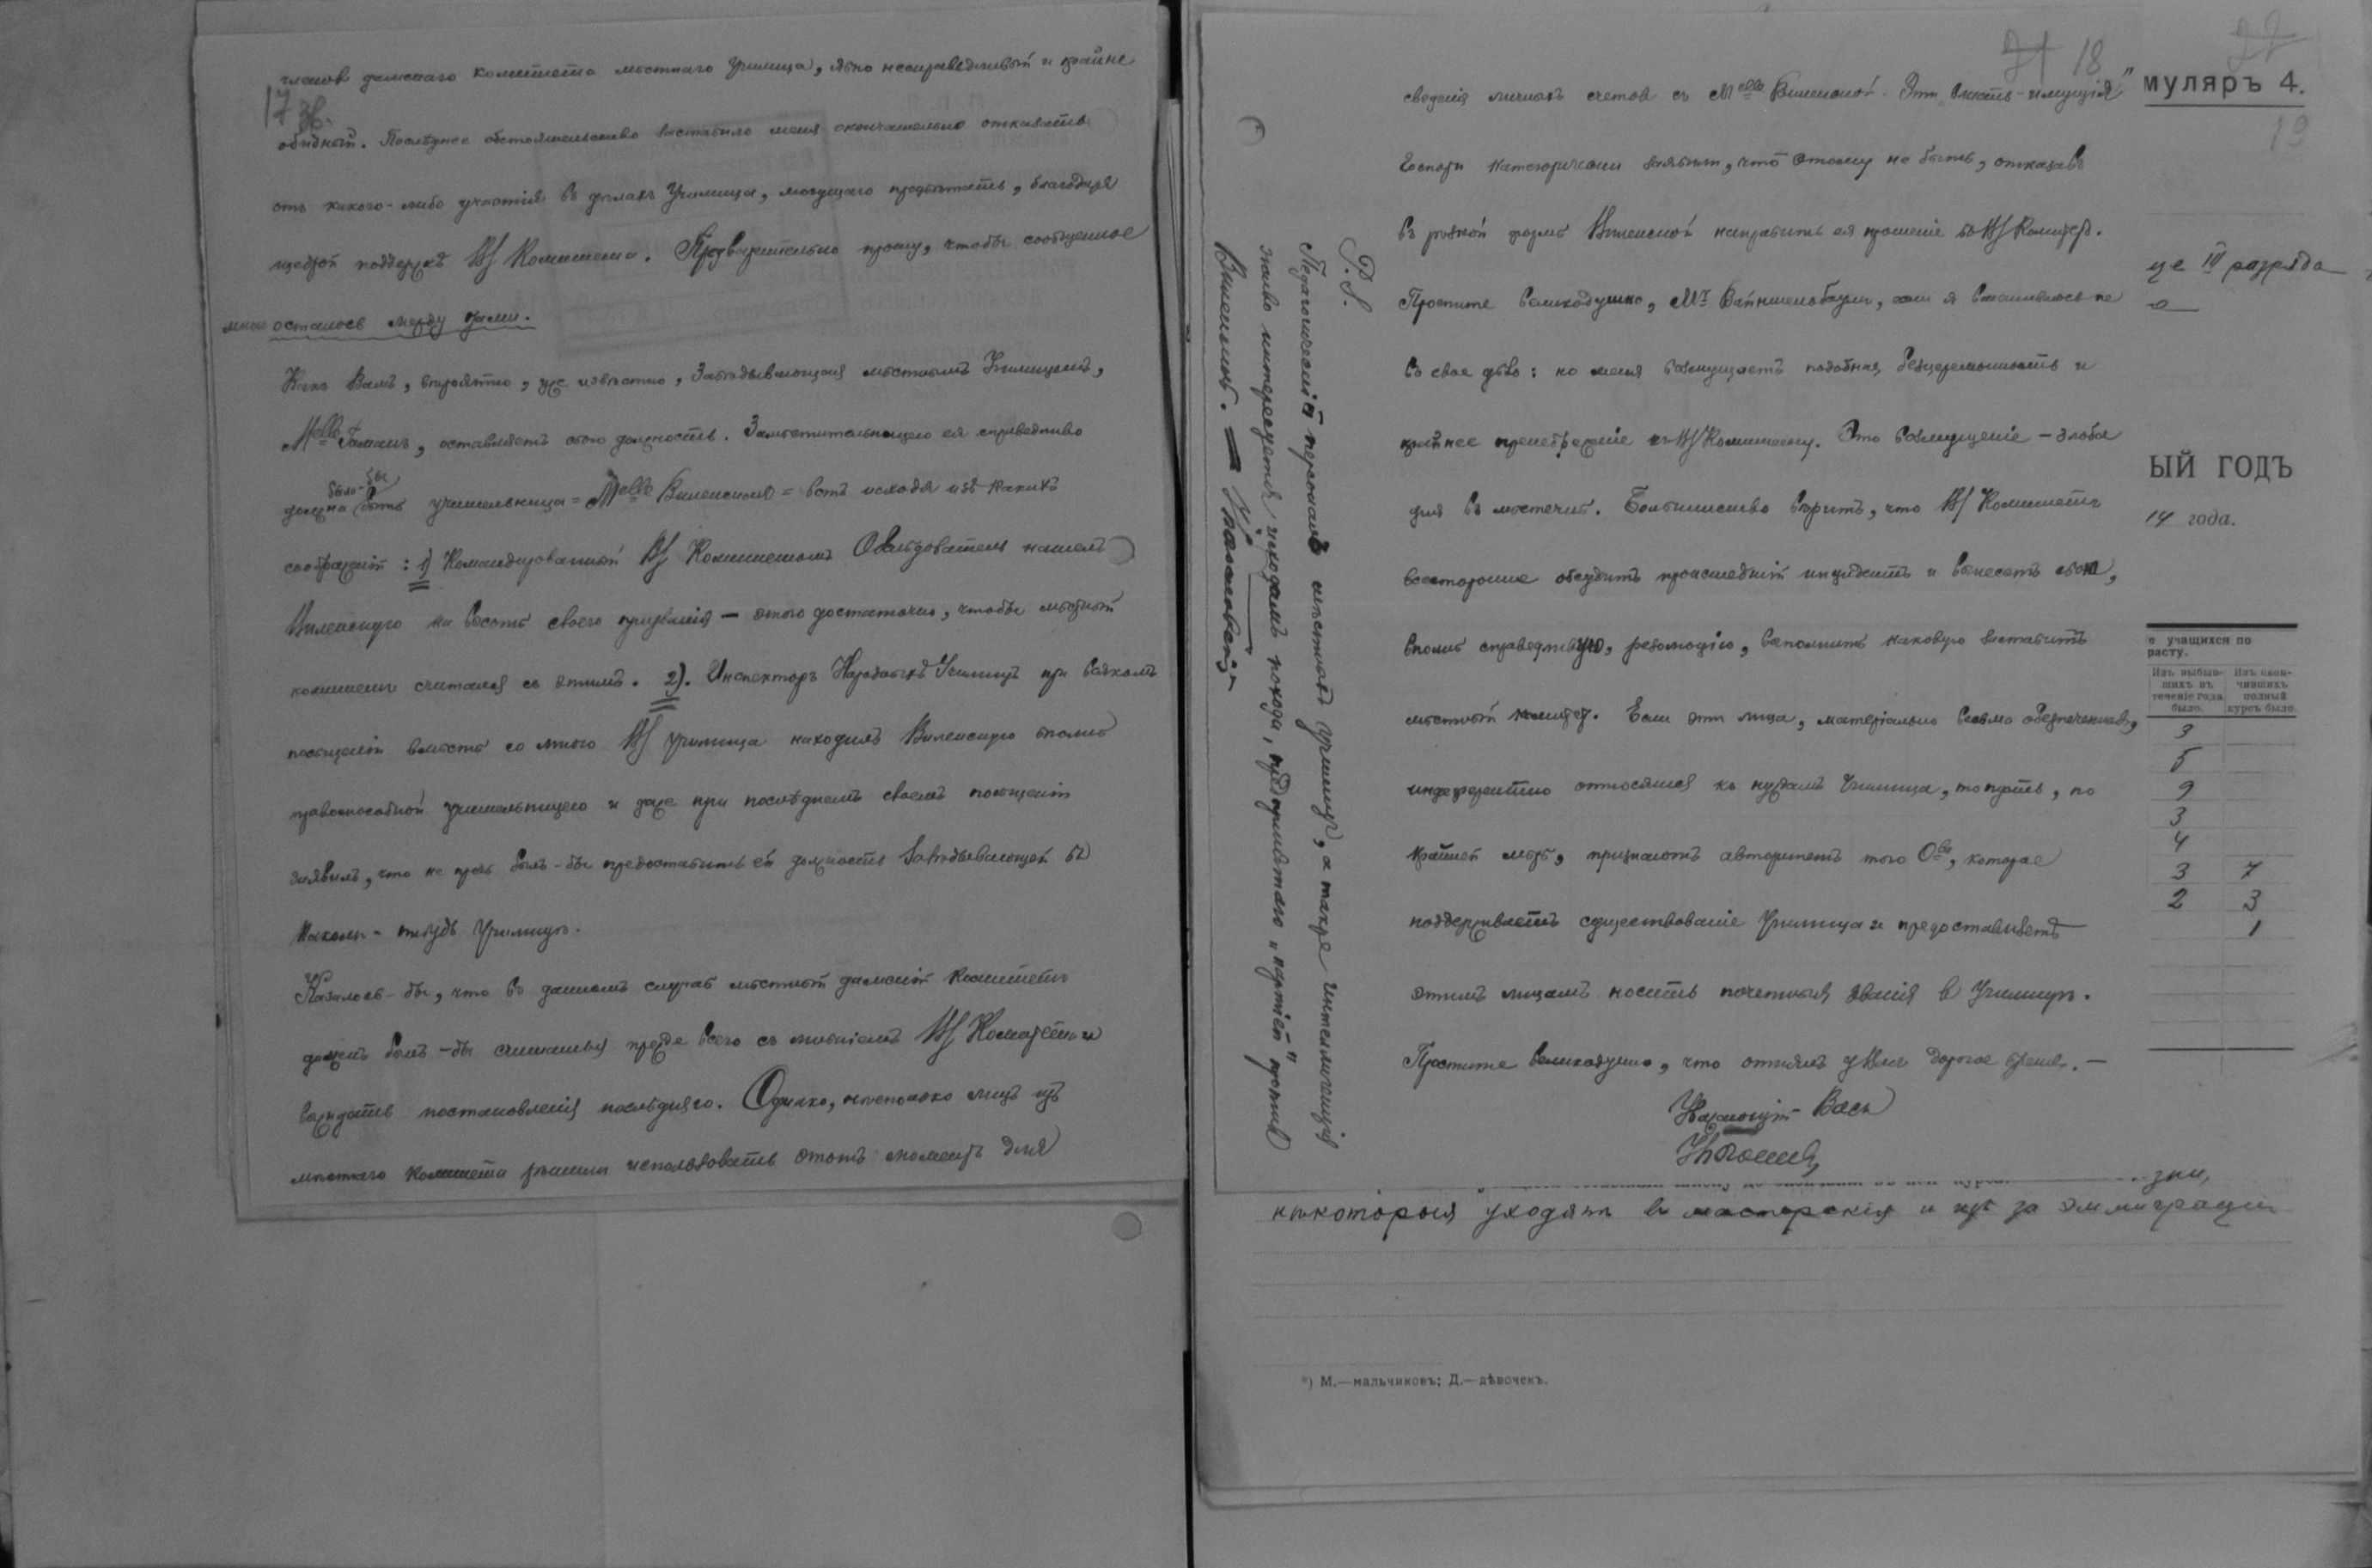 17 об.
членовъ дамскаго комитета мѣстнаго Училища, явно несправедливый и крайне
обидный. Послѣднее обстоятельство заставило меня окончательно отказаться
отъ какого-либо участія въ дѣлахъ Училища, могущаго процвѣтать, благодаря
щедрой поддержкѣ Комитета. Предварительно прошу, чтобы сообщенное
мною осталось между нами.
Какъ Вамъ, вѣроятно, уже извѣстно, Завѣдывающая мѣстнымъ Училищемъ,
Melle, оставляетъ свою должность. Замѣстительницею ея справедливо
было-бы
должна быть учительница = Melle Виленская = вотъ исходя изъ какихъ
соображеній: 1) Командированный Комитетомъ Обслѣдователь нашелъ
Виленскую на высотѣ своего призванія — этого достаточно, чтобы мѣстный
комитетъ считался съ этимъ. 2). Инспекторъ Народныхъ Училищъ при всякомъ
посѣщеніи вмѣстѣ со мною училища находилъ Виленскую вполнѣ
правоспособной учительницею и даже при послѣднемъ своемъ посѣщеніи
заявилъ, что не прочь былъ-бы предоставить ей должность Завѣдывающей въ
какомъ-нибудь Училищѣ.
Казалось-бы, что въ данномъ случаѣ мѣстный дамскій Комитетъ
долженъ былъ-бы считаться прежде всего съ мнѣніемъ Комитета и
выждать постановленія послѣдняго. Однако, нѣсколько лицъ изъ
мѣстнаго Комитета рѣшили использовать этотъ моментъ для
21 18
22
19
сведенія личныхъ счетовъ съ Melle Виленской. Эти „власть-имущія"
Господа категорически заявили, что этому не бытъ, отказавъ
въ рѣзкой формѣ Виленской направить ея прошеніе въ Комитетъ.
Простите великодушно, Mr Вайнштельбаумъ, если я вмѣшиваюсь не
въ свое дѣло: но меня возмущаетъ подобная безцеремонность и
крайнее пренебреженіе къ Комитету. Это возмущеніе — злоба
дня въ мѣстечкѣ. Большинство вѣритъ, что Комитетъ
всесторонне обсудитъ происшедшій инцидентъ и вынесетъ свою,
вполнѣ справедливую, резолюцію, исполнить каковую заставитъ
мѣстный комитетъ. Если эти лица, матеріально весьма обезпеченныя,
индеферентно относятся къ нуждамъ Училища, то пусть, по
крайней мѣрѣ, признаютъ авторитетъ того О-ва, которое
поддерживаетъ существованіе Училища и предоставляетъ
этимъ лицамъ носить почетныя званія въ Училищѣ.
Простите великодушно, что отнялъ у Васъ дорогое время. —
Уважающій Васъ
P.S.
Педагогическій персоналъ мѣстныхъ училищъ, а также интеллигенція
живо интересуется исходомъ похода, предпринятаго „партіей" противъ
Виленской.
муляръ 4.
це III разряда
ЫЙ ГОДЪ
14 года.
е учащихся по
расту.
Изъ выбыв-
шихъ въ
теченіе года
было.
Изъ окон-
чившихъ
полный
курсъ было.
3
5
9
3
4
3 7
2 3
1
зни,
нѣкоторыя уходятъ в мастерскія и изъ за эммиграціи
*) М.—мальчиковъ; Д.—дѣвочекъ.